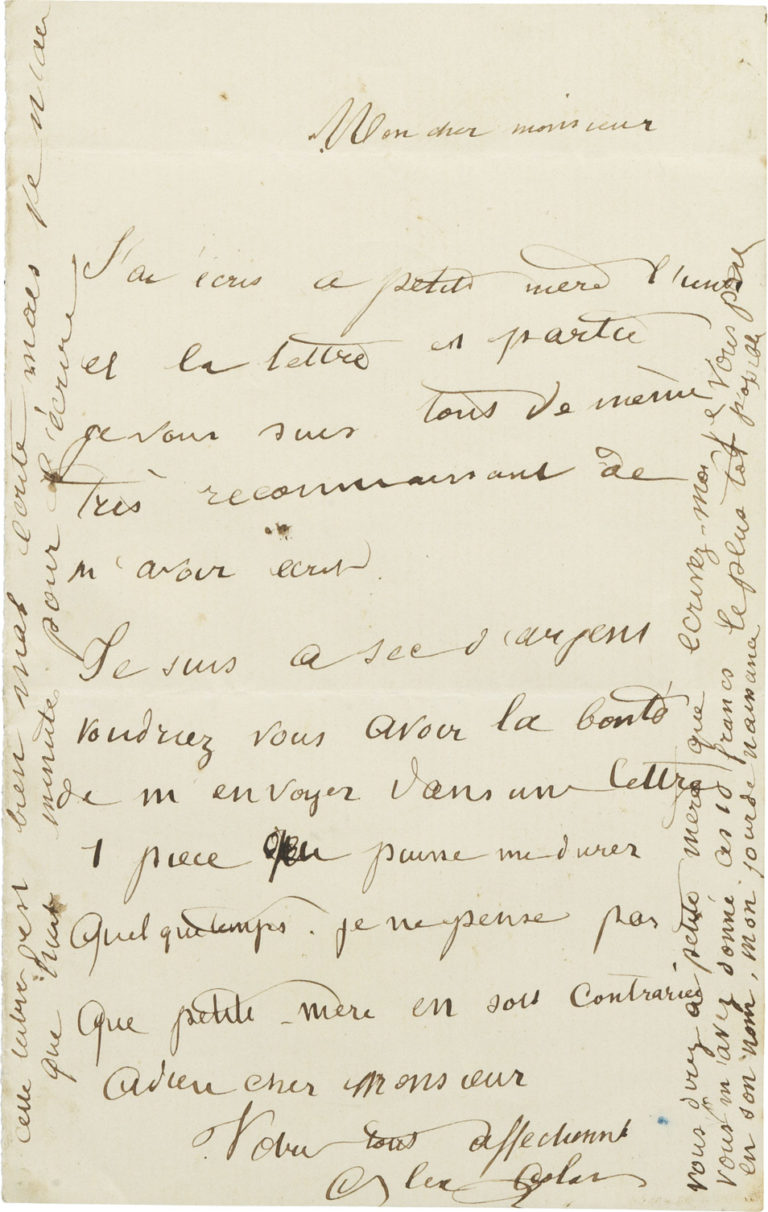 Mon cher monsieur
J'ai écris a petite mère l'union
et la lettre est partie
je vous suis tous de même
très reconnaissant de
m'avoir ecrit.
Je suis a sec d'argent
voudriez vous avoir la bonté
de m envoyer dans une lettre
1 piece qui puisse me durer
quelque temps. je ne pense pas
que petite mère en soit contrariée
adieu cher monsieur
Votre tous affectionné
Alex
vous direz a petite mère que ecrivez-moi je vous prie
vous m'avez donné ces 10 francs le plus tôt possible
en son nom, mon jour de naissance
cette lettre est bien mal écrite mais je n'ai
que huit minute pour l'écrire